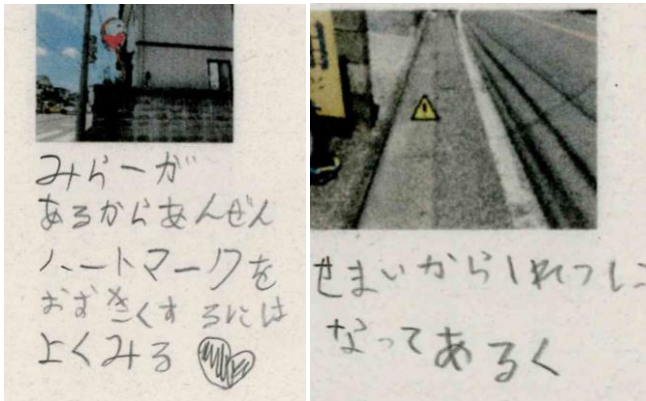 みらーが
あるからあんぜん
ハートマークを
おおきくするには
よくみる
せまいから1れつに
なってあるく